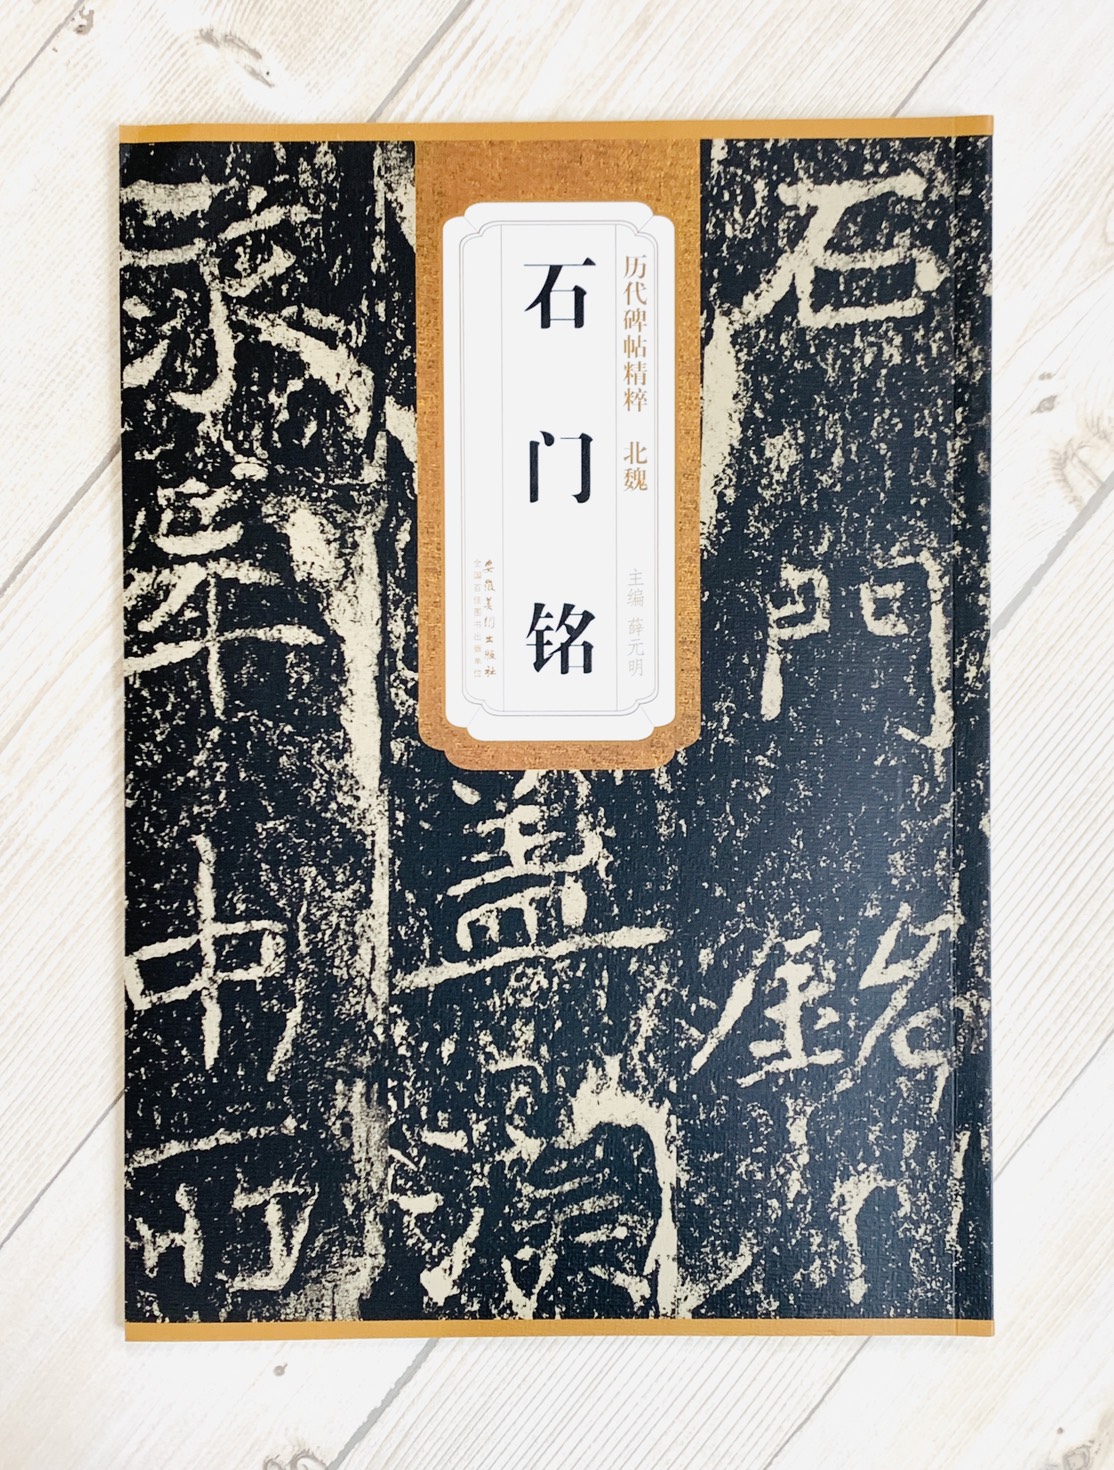 历代碑帖精粹 北魏 主编 薛元明
石门铭
安徽美术出版社
全国百佳图书出版单位
石門銘
盖漢
永平中所